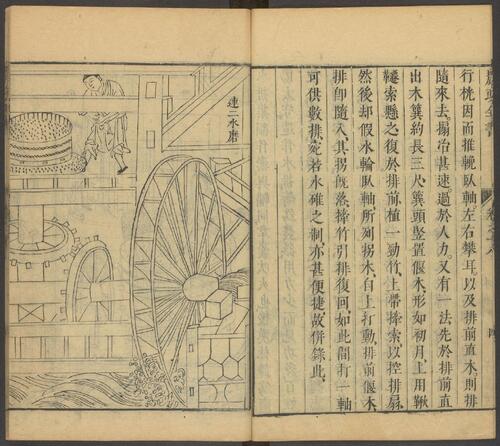 行桄因而推輓臥軸左右攀耳以及排前直木則排
隨來去搧冶甚速過於人力又有一法先於排前直
出木簨約長三尺簨頭豎置偃木形如初月上用鞦
韆索懸之復於排前植一勁竹上帶捧索以控排扇
然後却假水輪臥軸所列拐木自上打動排前偃木
排即隨入其拐既落捧竹引排復回如此間打一軸
可供數排宛若水碓之制亦甚便捷故併錄此
連二水磨